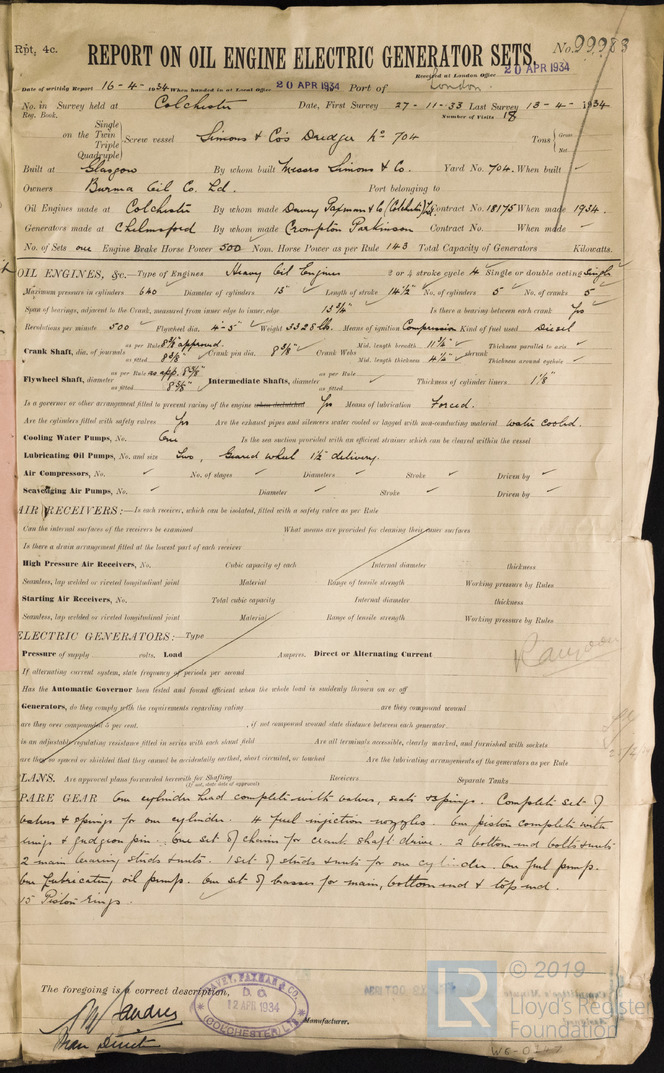 Rpt, 4c.
REPORT ON OIL ENGINE ELECTRIC GENERATOR SETS.
No. 99983
Received at London Office 20 APR 1934
Date of writing Report 16-4-1934 When handed in at Local Office 20 APR 1934 Port of London.
No. in Survey held at Colchester Date, First Survey 27-11-33 Last Survey 13-4-1934
Reg. Book. Number of Visits 18
on the Single Twin Triple Quadruple Screw vessel Simons & Co's Dredger No 704 Tons Gross Net
Built at Glasgow By whom built Messrs Simons & Co. Yard No. 704. When built
Owners Burma Oil Co. Ld. Port belonging to
Oil Engines made at Colchester By whom made Davey Paxman & Co (Colchester) Ld Contract No. 18175 When made 1934.
Generators made at Chelmsford By whom made Crompton Parkinson Contract No. When made
No. of Sets one Engine Brake Horse Power 500 Nom. Horse Power as per Rule 143 Total Capacity of Generators Kilowatts.
OIL ENGINES, &c.—Type of Engines Heavy Oil Engines 2 or 4 stroke cycle 4 Single or double acting Single
Maximum pressure in cylinders 640 Diameter of cylinders 13" Length of stroke 14½" No. of cylinders 5 No. of cranks 5
Span of bearings, adjacent to the Crank, measured from inner edge to inner edge 13¾" Is there a bearing between each crank Yes
Revolutions per minute 500 Flywheel dia. 4-5" Weight 3328 lbs. Means of ignition Compression Kind of fuel used Diesel
Crank Shaft, dia. of journals as per Rule 8⅜" approved. as fitted 8⅜" Crank pin dia. 8⅜" Crank Webs Mid. length breadth 11½" Mid. length thickness 4½" shrunk Thickness parallel to axis Thickness around eyehole
Flywheel Shaft, diameter as per Rule as app. 8⅜" as fitted 8⅜" Intermediate Shafts, diameter as per Rule as fitted Thickness of cylinder liners 1⅛"
Is a governor or other arrangement fitted to prevent racing of the engine when declutched Yes Means of lubrication Forced.
Are the cylinders fitted with safety valves Yes Are the exhaust pipes and silencers water cooled or lagged with non-conducting material water cooled.
Cooling Water Pumps, No. One Is the sea suction provided with an efficient strainer which can be cleared within the vessel
Lubricating Oil Pumps, No. and size Two, Geared wheel 1½" delivery.
Air Compressors, No. No. of stages Diameters Stroke Driven by
Scavenging Air Pumps, No. Diameter Stroke Driven by
AIR RECEIVERS:—Is each receiver, which can be isolated, fitted with a safety valve as per Rule
Can the internal surfaces of the receivers be examined What means are provided for cleaning their inner surfaces
Is there a drain arrangement fitted at the lowest part of each receiver
High Pressure Air Receivers, No. Cubic capacity of each Internal diameter thickness
Seamless, lap welded or riveted longitudinal joint Material Range of tensile strength Working pressure by Rules
Starting Air Receivers, No. Total cubic capacity Internal diameter thickness
Seamless, lap welded or riveted longitudinal joint Material Range of tensile strength Working pressure by Rules
ELECTRIC GENERATORS:—Type
Pressure of supply volts. Load Amperes. Direct or Alternating Current
If alternating current system, state frequency of periods per second
Has the Automatic Governor been tested and found efficient when the whole load is suddenly thrown on or off
Generators, do they comply with the requirements regarding rating are they compound wound
are they over compounded 5 per cent. , if not compound wound state distance between each generator
is an adjustable regulating resistance fitted in series with each shunt field Are all terminals accessible, clearly marked, and furnished with sockets
are they so spaced or shielded that they cannot be accidentally earthed, short circuited, or touched Are the lubricating arrangements of the generators as per Rule
LANS. Are approved plans forwarded herewith for Shafting Receivers Separate Tanks
(If not, state date of approval)
PARE GEAR One cylinder head complete with valves, seats & springs. Complete set of
valves & springs for one cylinder. 4 fuel injection nozzles. One piston complete with
rings & gudgeon pin. One set of chains for crank shaft drive. 2 bottom end bolts & nuts
2 main bearing studs & nuts. 1 set of studs & nuts for one cylinder. One fuel pump.
One lubricating oil pump. One set of brasses for main, bottom end & top end.
15 Piston rings.
The foregoing is a correct description,
DAVEY, PAXMAN & CO.
D.O.
12 APR 1934
(COLCHESTER) LTD
Manufacturer.
LR
© 2019
Lloyd's Register
Foundation